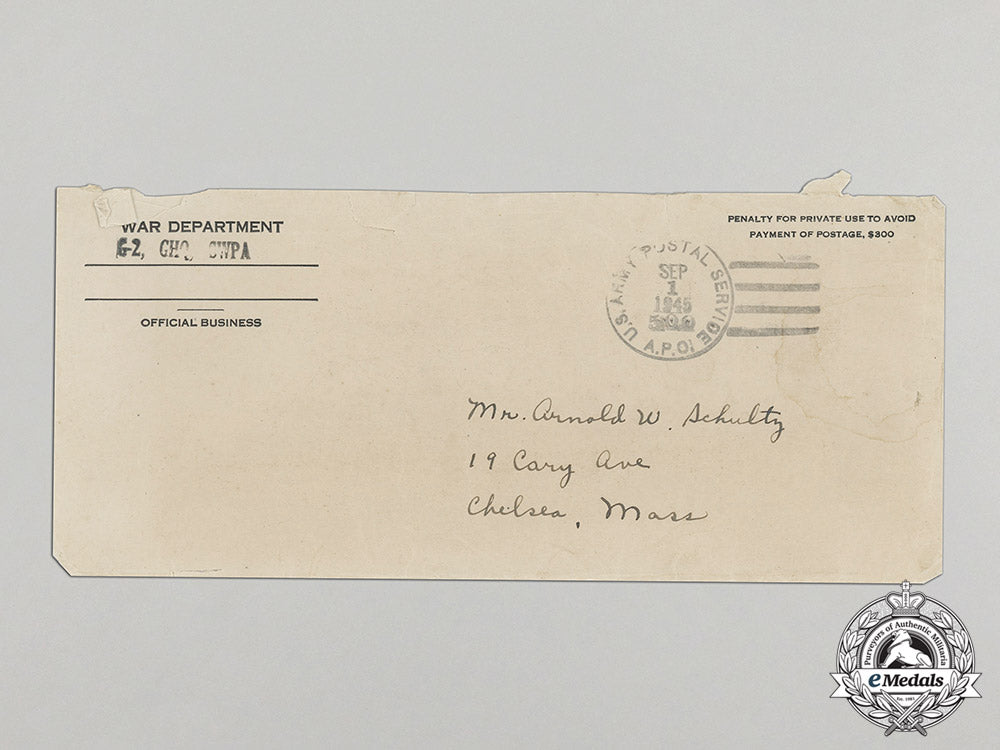 WAR DEPARTMENT
G-2, GHQ, SWPA
OFFICIAL BUSINESS
PENALTY FOR PRIVATE USE TO AVOID
PAYMENT OF POSTAGE, $300
U.S. ARMY POSTAL SERVICE
SEP
1
1945
A.P.O.
Mr. Arnold W. Schultz
19 Cary Ave
Chelsea, Mass
Purveyors of Authentic Militaria
eMedals
Est. 1985